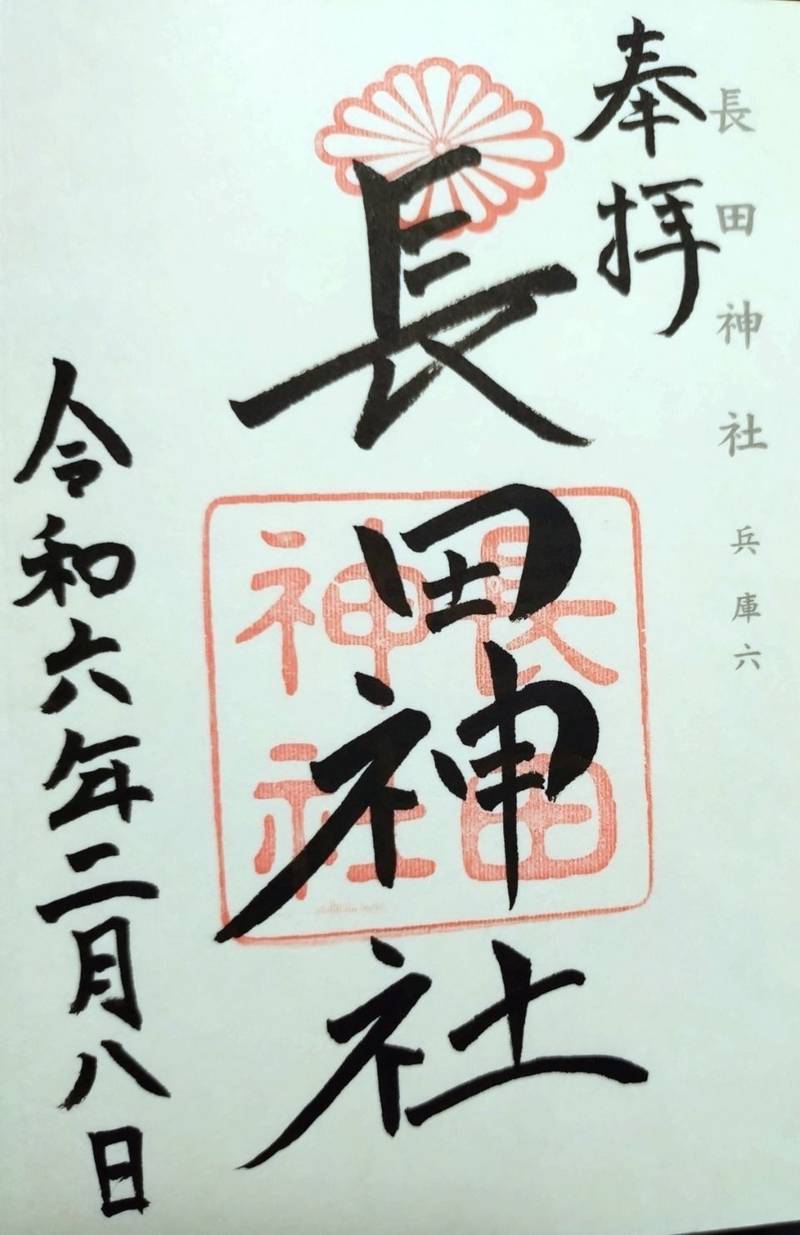 長田神社 兵庫六
奉拝
長田神社
長田
神社
令和六年二月八日